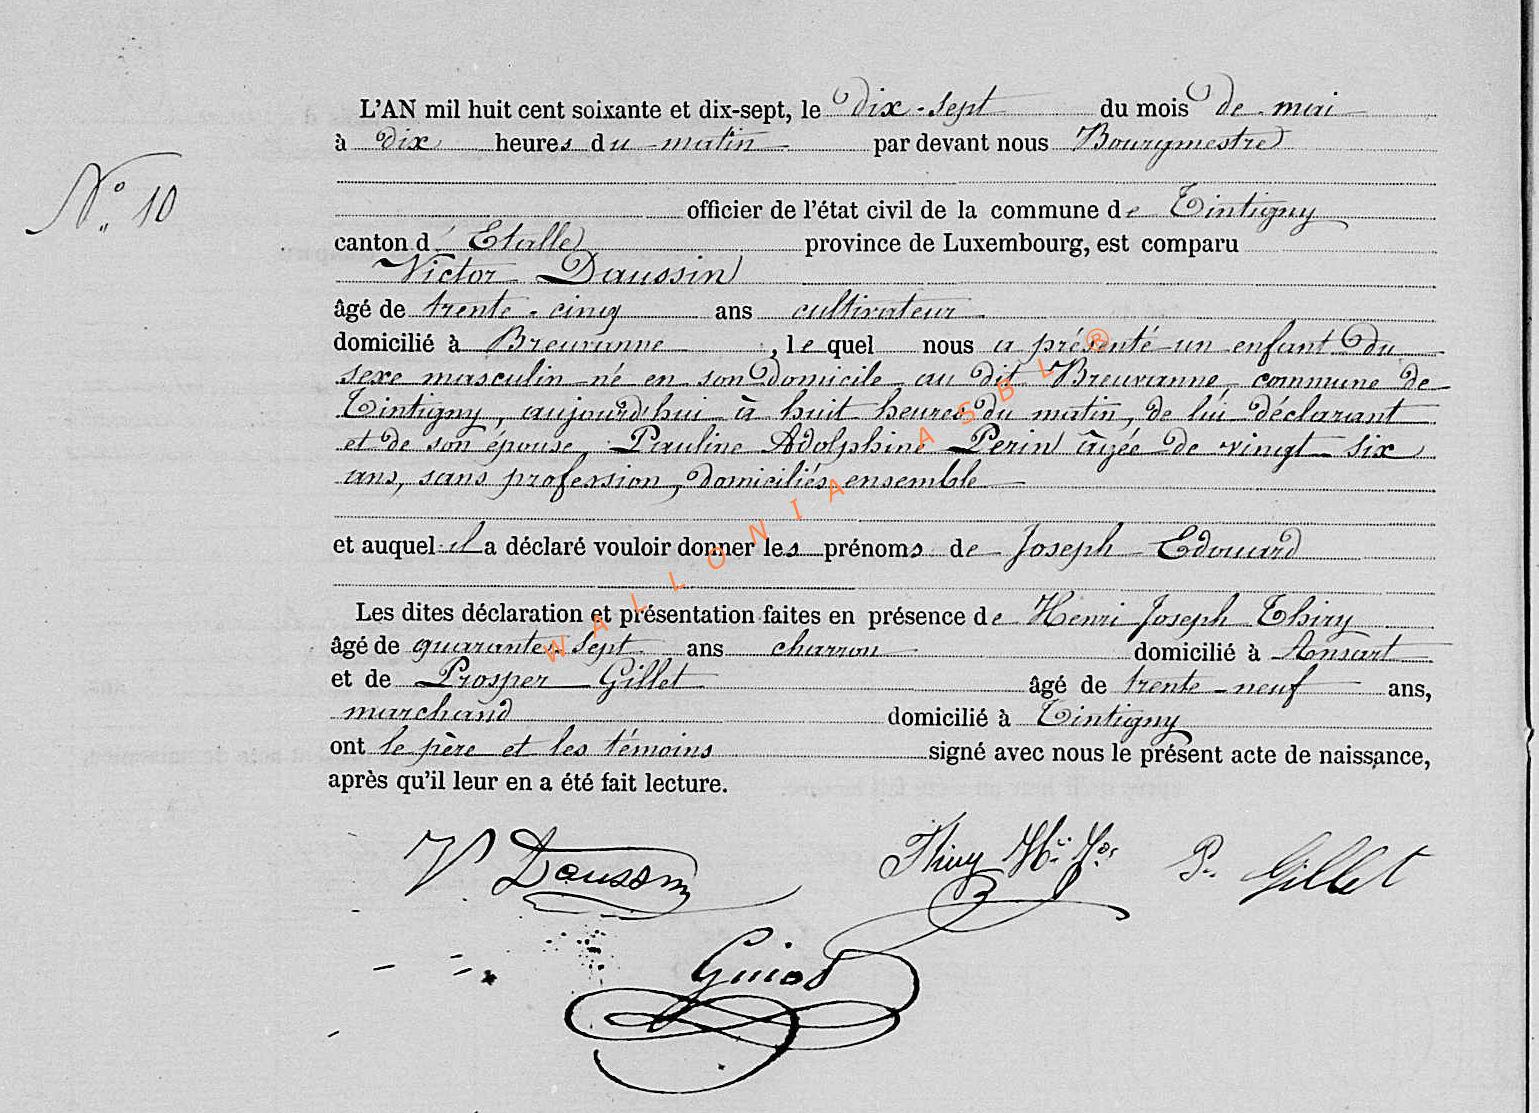 L'AN mil huit cent soixante et dix-sept, le dix-sept du mois de mai
à dix heures du matin par devant nous Bourgmestre
N° 10
officier de l'état civil de la commune de Tintigny
canton d'Etalle province de Luxembourg, est comparu
Victor Daussin
âgé de trente-cinq ans cultivateur
domicilié à Breuvanne, lequel nous a présenté un enfant du
sexe masculin né en son domicile au dit Breuvanne, commune de
Tintigny, aujourd'hui à huit heures du matin, de lui déclarant
et de son épouse, Pauline Adolphine Perin âgée de vingt-six
ans, sans profession, domiciliés ensemble
et auquel il a déclaré vouloir donner les prénoms de Joseph Edouard
Les dites déclaration et présentation faites en présence de Henri Joseph Thiry
âgé de quarante-sept ans charron domicilié à Ansart
et de Prosper Gillet âgé de trente-neuf ans,
marchand domicilié à Tintigny
ont le père et les témoins signé avec nous le présent acte de naissance,
après qu'il leur en a été fait lecture.
V Daussin Thiry Hri Jos P. Gillet
Guiot
WALLONIA ASBL ®